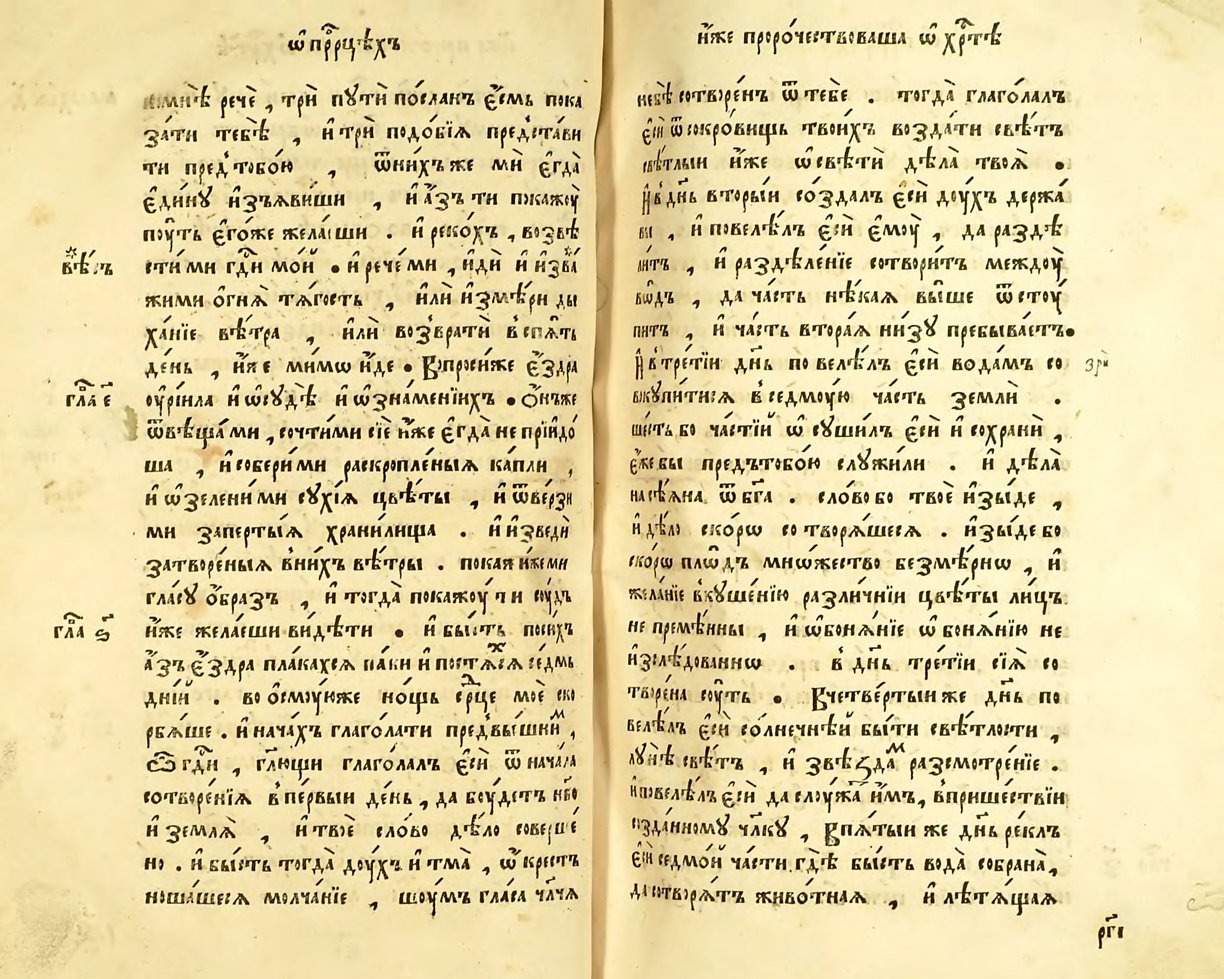 ѡ҆ прⷪ҇рцѣхъ
кмнѣ̀ речѐ , трѝ пꙋти̑ по́сланъ є҆́смь пока
за́ти тебѣ̀ , и҆ трѝ подо́бїѧ предста́ви
ти пред̾тобо́ю , ѿни́хъже мѝ є҆гда̀
є҆ди́нꙋ и҆з̾ѧви́ши , и҆ а҆́зъ ти покажоу̀
поу́ть є҆го́же жела́еши . и҆ реко́хъ , возвѣ
сти́ ми гдⷭ҇и мо́й . и҆ рече́ ми , и҆дѝ и҆ и҆зва́
вѣ́съ
жи ми о҆гнѧ̀ тѧ́гость , и҆лѝ и҆змѣ́ри ды
ха́нїе вѣ́тра , и҆лѝ возвратѝ в̾спѧ́ть
де́нь , и҆́же мимѡ и҆́де . Впроси́же є҆́здра
гла є҃
оу҆рїила и҆ ѡ҆сꙋдѣ̀ и҆ ѡ҆знаменїихъ . Ѻ҆́нъже
ѿвѣща́ ми , сочти́ ми сїѐ и҆̀же є҆гда̀ не прїидо́
ша , и҆ собери́ ми раскропле́ныѧ ка́пли ,
и҆ ѡ҆зелени́ ми сꙋхі́ѧ цвѣ́ты , и҆ ѿве́рзи
ми запе́ртыѧ храни́лища . и҆ и҆зведѝ
затворе́ныѧ в̾ни́хъ вѣ́тры . покажи́ же ми
гла́сꙋ ѻ҆́бразъ , и҆ тогда̀ покажоу̀ ти соу́дъ
гла ѕ҃
и҆́же жела́еши ви́дѣти . и҆ бы́сть поси́хъ
а҆́зъ є҆́здра пла́кахсѧ па́ки и҆ постѧ́хсѧ се́дмь
дні́й . во ѻ҆смоу́юже но́щь ср҃це моѐ ско
рбѧ́ше . и҆ нача́хъ глаго́лати пред̾вы́шни́м ,
Ѽ гдⷭ҇и , гл҃ющи глаго́лалъ є҆сѝ ѿ нача́ла
сотворе́нїѧ в̾пе́рвыи де́нь , да боу́детъ нб҃о
и҆ землѧ̀ , и҆ твоѐ сло́во дѣ́ло соверше́
но . и҆ бы́сть тогда̀ доу́хъ и҆ тма̀ , ѡ҆́крестъ
ноша́шесѧ молча́нїе , шоу́мъ гла́са чл҃чѧ
и҆́же проро́чествоваша ѡ҆ хрⷭ҇тѣ
небѣ̀ сотворе́нъ ѿ тебе . тогда̀ глаго́лалъ
є҆сѝ ѿ сокро́вищь твои́хъ возда́ти свѣ́тъ
свѣ́тлыи и҆́же ѡ҆свѣтѝ дѣла̀ твоѧ̀ .
И҆ в̾ днь҃ вторы́и со́здалъ є҆сѝ доу́хъ держа́
вы , и҆ повелѣ́лъ є҆сѝ є҆моу̀ , да раздѣ
ли́тъ , и҆ раздѣле́нїе сотвори́тъ междоу̀
во́дъ , да ча́сть нѣ́каѧ вы́ше ѿстоу́
питъ , и҆ ча́сть втора́ѧ ни́зꙋ пребыва́етъ.
И҆ в̾ тре́тїи днь҃ повелѣ́лъ є҆сѝ вода́мъ со
зри̑
вкꙋпи́тисѧ в̾ седмоу́ю часть земли̑ .
ше́сть бо часті́й ѡ҆сꙋши́лъ є҆сѝ и҆ сохранѝ ,
є҆́же бы предътобо́ю слꙋжи́ли . и҆ дѣла̀
насѣ́ѧна ѿ бг҃а . сло́во бо твоѐ и҆зы́де ,
и҆ дѣ́ло ско́рѡ сотворѧ́шесѧ . и҆зы́де бо
ско́рѡ пло́дъ мно́жество безмѣ́рнѡ , и҆
жела́нїе вкꙋше́нїю разли́чнїи цвѣ́ты ли́цъ.
не премѣ́нны , и҆ ѡ҆бонѧ́нїе ѡ҆бонѧ́нїю не
и҆зслѣ́дованнѡ . в̾ днь҃ тре́тїи сїѧ̀ со
творе́на соу́ть . Вчетве́ртыи же днь҃ по
велѣ́лъ є҆сѝ со́лнечнѣй бы́ти свѣ́тлости ,
лꙋнѣ̀ свѣ́тъ , и҆ звѣзда́м разсмотре́нїе .
и҆ повелѣ́лъ є҆сѝ да слоу́жа и҆́мъ , вприше́ствїи
со́зданномꙋ чл҃кꙋ , Впѧ́тыи же днь҃ ре́клъ
є҆сѝ седмо́й ча́сти гдѣ̀ бы́сть вода̀ собрана̀ ,
да сотворѧ́тъ живо́тнаѧ , и҆ лѣтѧ́щаѧ